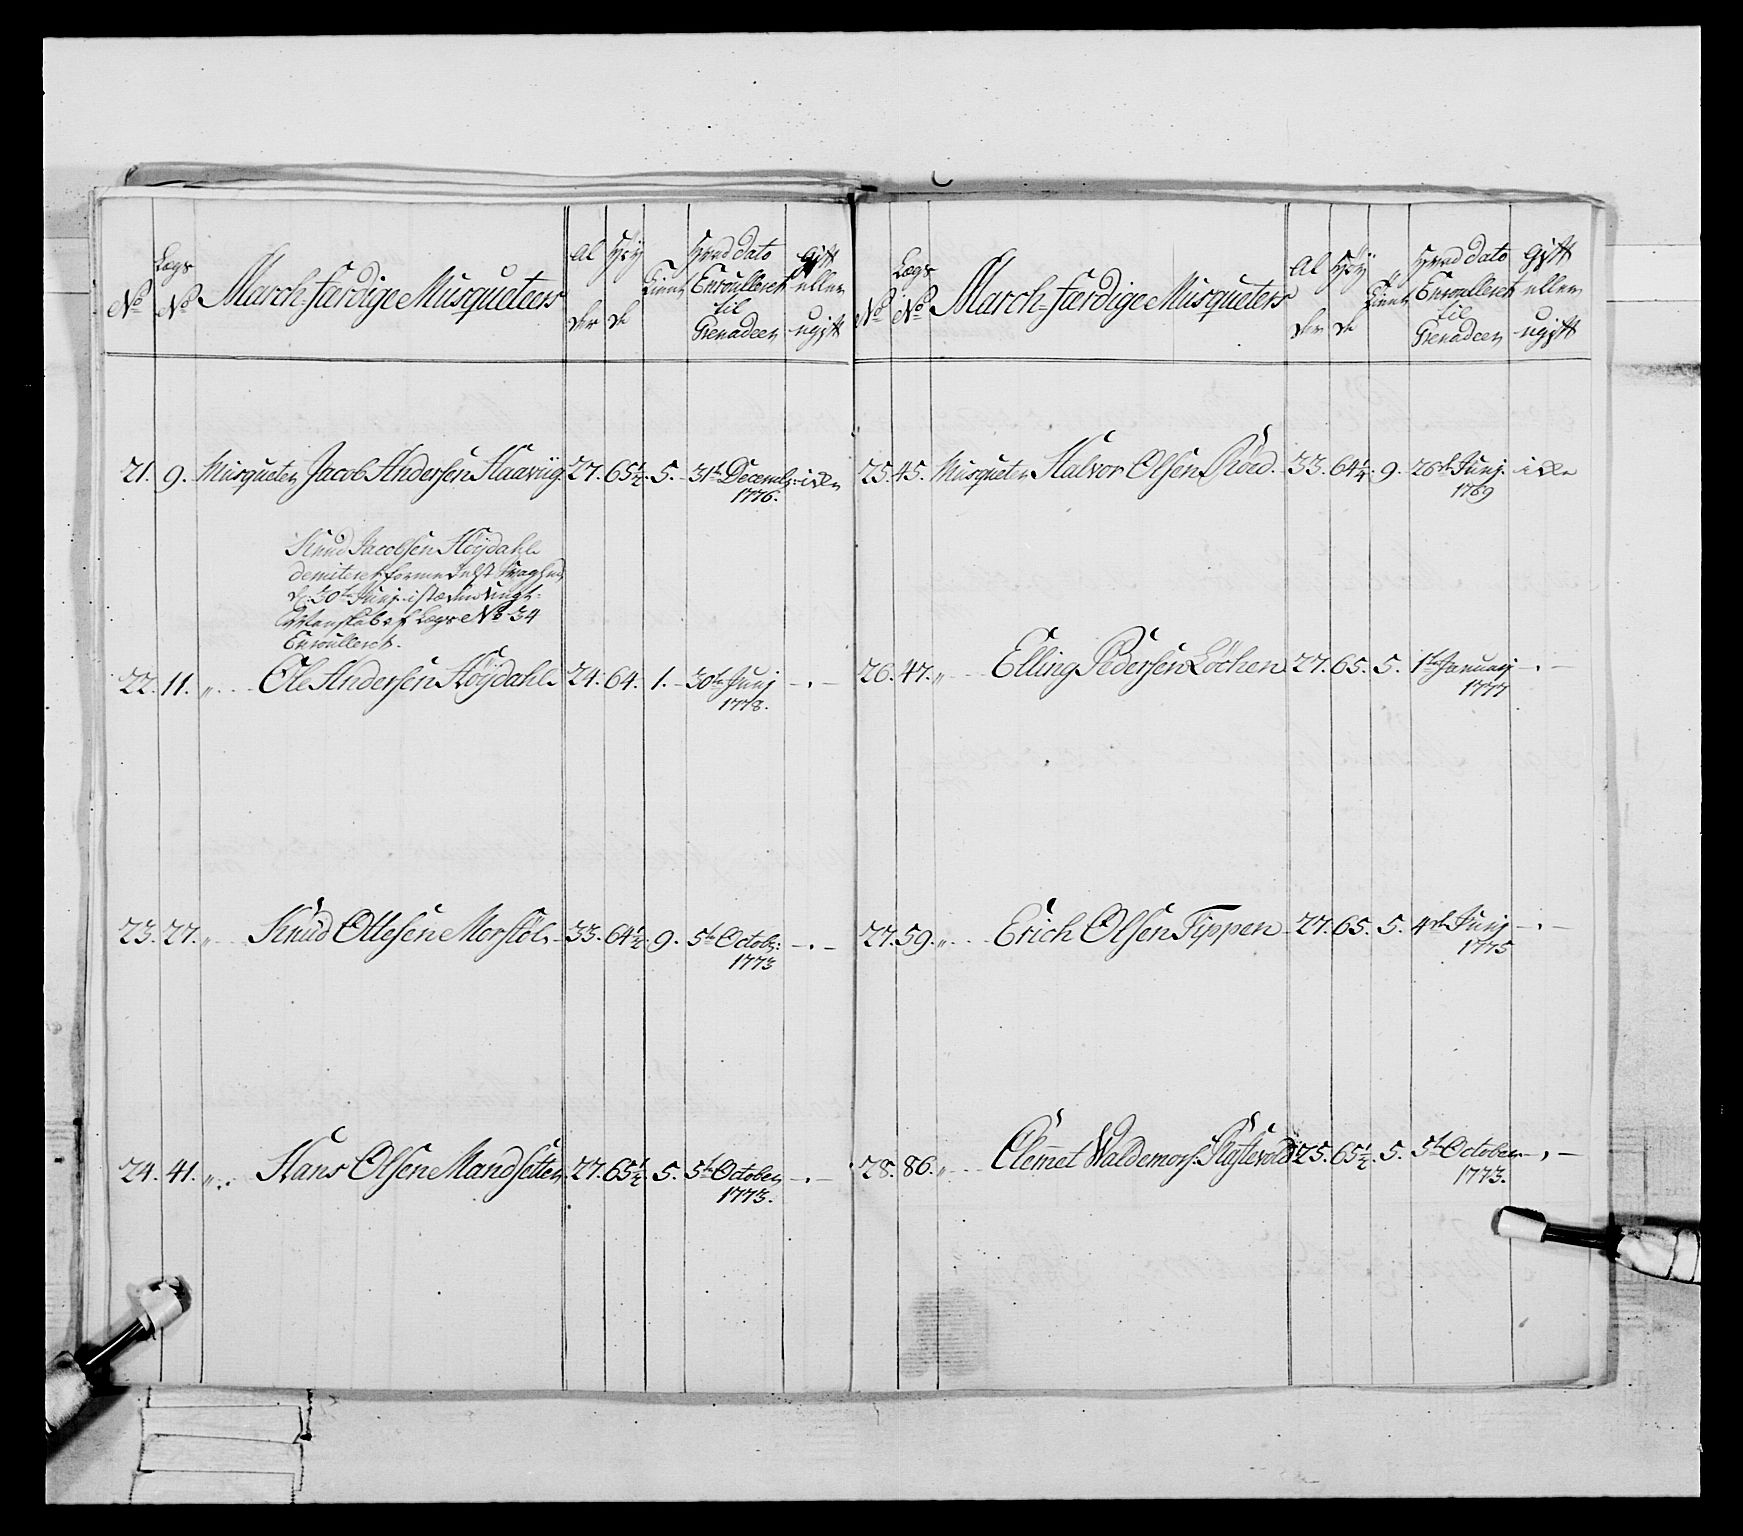 No
Legs No
March-færdige Musqueteers
Al der
Høy de
Tient
Hvad dato Enroulleret til Grenadeer
Gift eller ugift
21. 9. Musqueteer Jacob Andersen Haavüg. 27. 65½. 5. 31te Decembr: 1776.
Knud Jacobsen Höÿdahl
demiteret formedelst Svaghed
d. 30te Junj istæden ungt-
Mandskab af Legs No 34
Enroulleret.
22. 11. „ Ole Andersen Höÿdahl. 24. 64. 1. 30te Junj 1778. - . -
23. 27. „ Knud Ottesen Morstöl. 33. 64½. 9. 5te Octobr: 1773 - . -
24. 41. „ Hans Olsen Mandseter. 27. 65½. 5. 5te October 1773. - . -
No
Legs No
March-færdige Musqueters
Al der
Høy de
Tient
Hvad dato Enroulleret til Grenadeer
Gift eller ugift
25. 45. Musqueter Halvor Olsen Röed. 33. 64¼. 9. 26de Junj. 1769
26. 47. „ Elling Pedersen Löchen 27. 65. 5. 1te Januarj 1777 - . -
27. 59. „ Erich Olsen Typpen 27. 65. 5. 4de Junj 1775 - . -
28. 86. „ Clemet Waldemors. 25. 65½. 5. 5te October 1773. - . -